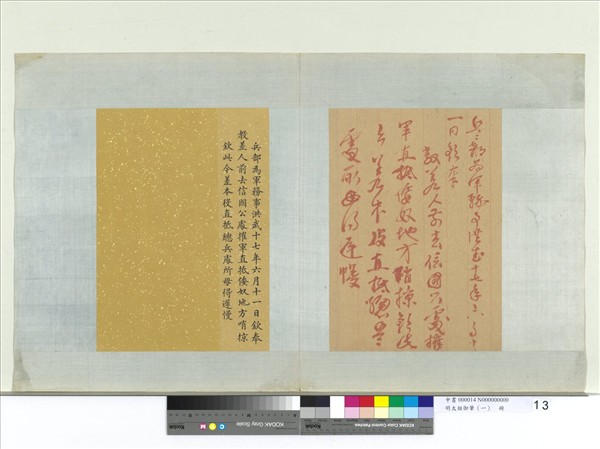 兵部為軍務事洪武十七年六月十
一日欽奉
教差人前去信國公處摧
軍直抵倭奴地方哨掠欽此
今差本役直抵總兵
處所毋得遲慢
兵部為軍務事洪武十七年六月十一日欽奉
教差人前去信國公處摧軍直抵倭奴地方哨掠
欽此今差本役直抵總兵處所毋得遲慢
Kodak
C Y M
KODAK Gray Scale
Kodak
KODAK Color Control Patches
中書 000014 N000000000
明太祖御筆（一） 冊
13